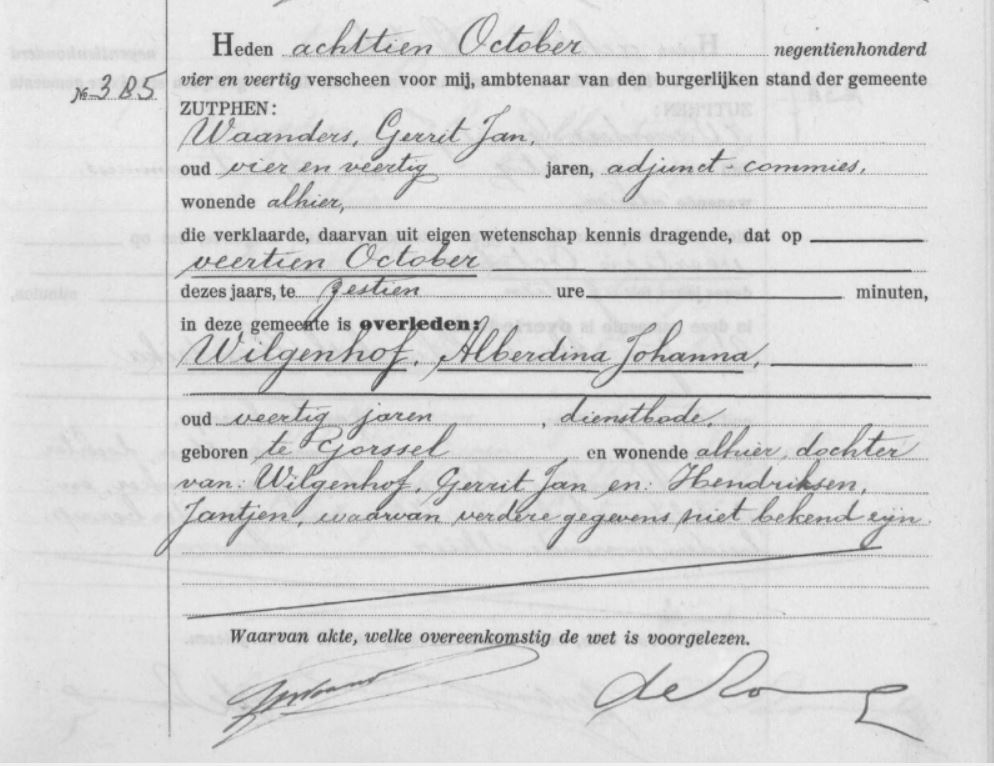 Heden achttien October negentienhonderd
№ 385 vier en veertig verscheen voor mij, ambtenaar van den burgerlijken stand der gemeente
ZUTPHEN:
Waanders, Gerrit Jan,
oud vier en veertig jaren, adjunct-commies,
wonende alhier,
die verklaarde, daarvan uit eigen wetenschap kennis dragende, dat op
veertien October
dezes jaars, te zestien ure minuten,
in deze gemeente is overleden:
Wilgenhof, Alberdina Johanna,
oud veertig jaren, dienstbode,
geboren te Gorssel en wonende alhier, dochter
van: Wilgenhof, Gerrit Jan en: Hendriksen,
Jantjen, waarvan verdere gegevens niet bekend zijn.
Waarvan akte, welke overeenkomstig de wet is voorgelezen.